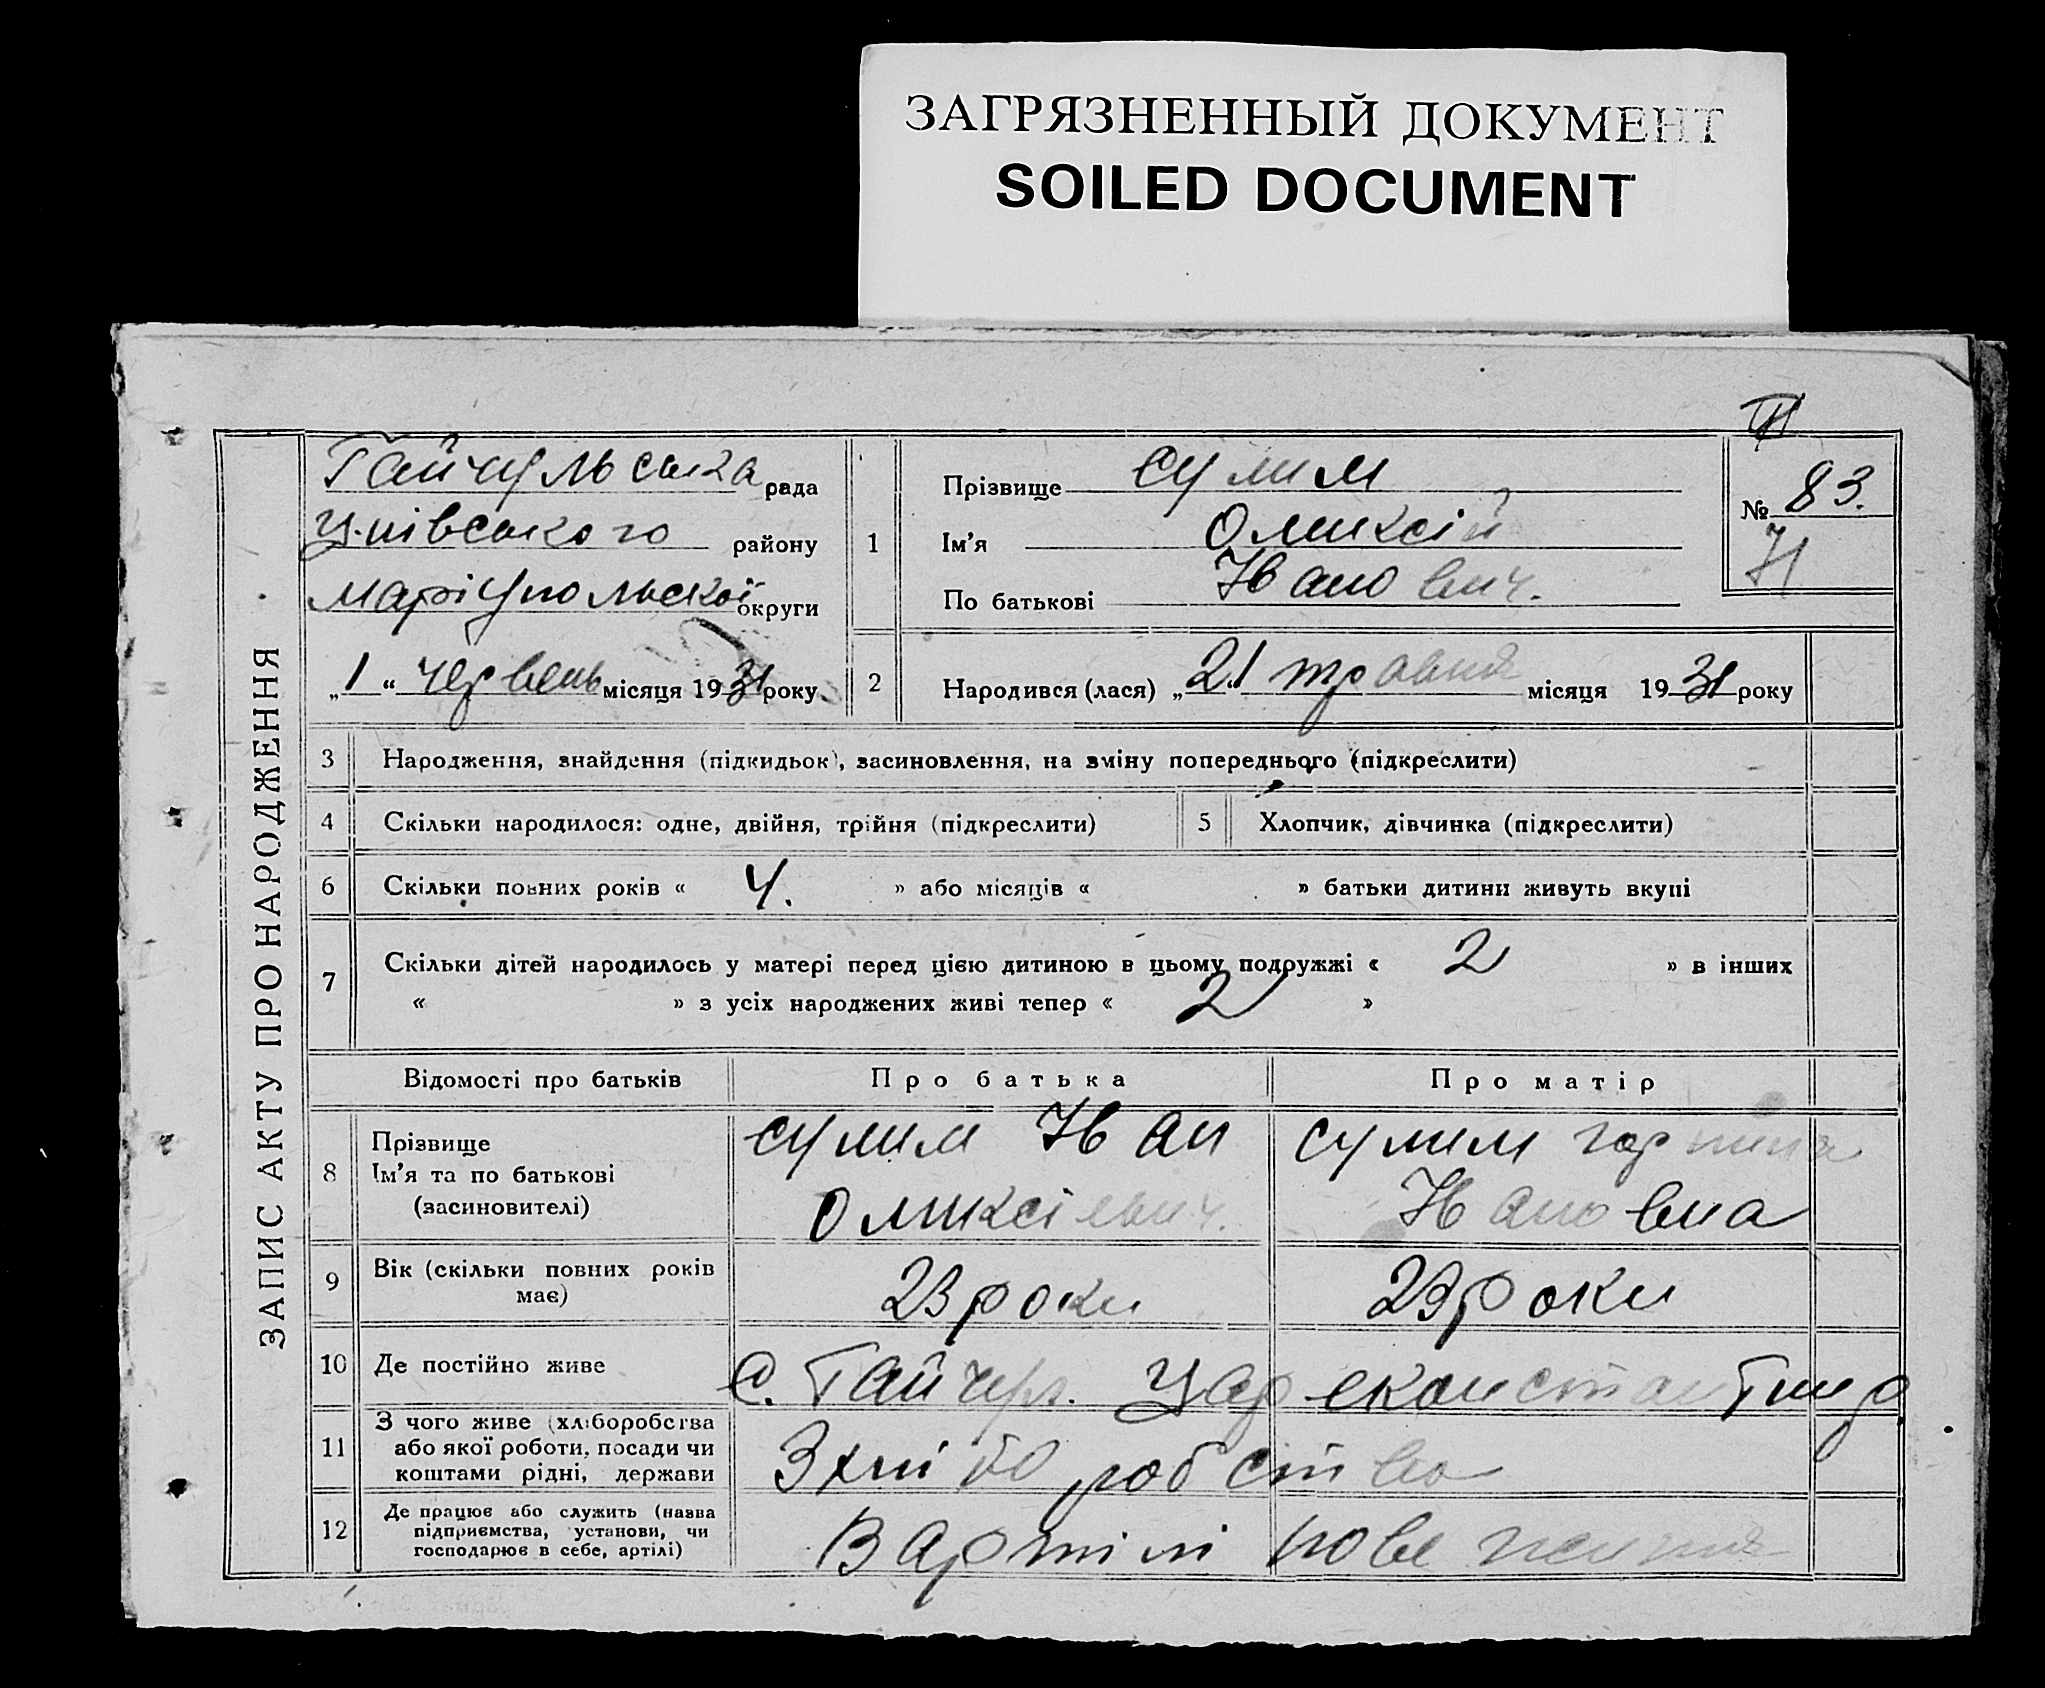 ЗАГРЯЗНЕННЫЙ ДОКУМЕНТ
SOILED DOCUMENT
ЗАПИС АКТУ ПРО НАРОДЖЕННЯ
Гайчульська рада
району
маріупольскої округи
„1“ червень місяця 1931 року
1
Прізвище Сулим
Ім'я Оликсій
По батькові Іванович.
№ 83.
2
Народився (лася) „21“ травня місяця 1931 року
3 Народження, знайдення (підкидьок), засиновлення, на зміну попереднього (підкреслити)
4 Скільки народилося: одне, двійня, трійня (підкреслити)
5 Хлопчик, дівчинка (підкреслити)
6 Скільки повних років « 4. » або місяців « » батьки дитини живуть вкупі
7 Скільки дітей народилось у матері перед цією дитиною в цьому подружжі « 2 » в інших
« » з усіх народжених живі тепер « 2 »
Відомості про батьків Про батька Про матір
8 Прізвище
Ім'я та по батькові
(засиновителі)
сулим Іван
Оликсієвич.
сулим горпина
Івановна
9 Вік (скільки повних років
має)
23 роки
23 роки
10 Де постійно живе
с. Гайчул.
11 З чого живе (хліборобства
або якої роботи, посади чи
коштами рідні, держави
З хліборобства
12 Де працює або служить (назва
підприємства, установи, чи
господарює в себе, артілі)
В артілі нове життя